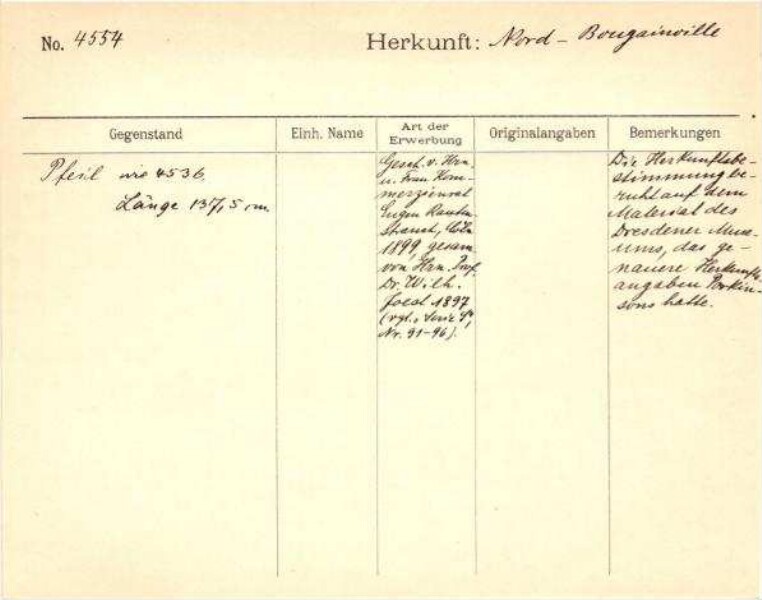 No. 4554
Herkunft: Nord - Bougainville
Gegenstand
Einh. Name
Art der Erwerbung
Originalangaben
Bemerkungen
Pfeil wie 4536.
Länge 137,5 cm.
Gesch. v. Hrn.
u. Frau Kom-
merzienrat
Eugen Rauten-
strauch, Cöln
1899, gesam.
von Hrn. Prof.
Dr. Wilh.
Joest 1897
(vgl.
Nr. 91-96).
Die Herkunftsbe-
stimmung be-
ruht auf dem
Material des
Dresdener Muse-
ums, das ge-
nauere Herkunfts-
angaben Parkin-
sons hatte.